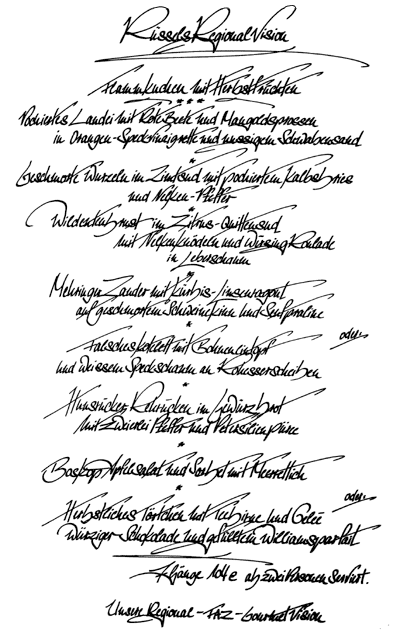 Rüssels Regional Vision
Flammkuchen mit Herbstfrüchten
* * *
Pochiertes Landei mit Rote Beete und Mangoldsprossen
in Orangen-Speckvinaigrette und nussigem Schwabensand
*
Geschmorte Wurzeln im Zimtsud mit pochiertem Kalbsbries
und Nelken-Pfeffer
*
Wildentenbrust im Zitrus-Quittensud
mit Nelkenknödeln und Wirsing Roulade
in Leberschaum
*
Mehringer Zander mit Kürbis-Linsenragout
auf geschmortem Schweinekinn und Senfpraline
* oder
Falsches Kotelett mit Bohneneintopf
und weissem Speckschaum an Radieserscheiben
*
Hunsrücker Rehrücken im Gewürzbrot
mit Zweierlei Pfeffer und Petersilienpüree
*
Boskop Apfelsalat und Sorbet mit Meerrettich
* oder
Herbstliches Törtchen mit Teebirne und Gelee
Würziger Schokolade und gefülltem Williamsparfait
7 Gänge 104 € ab zwei Personen serviert.
Unsere Regional - FAZ - Gourmet Vision